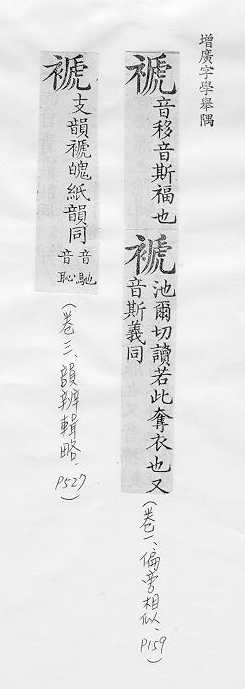 增廣字學舉隅
禠音移音斯福也
褫池爾切讀若此奪衣也又
音斯義同
（卷一、偏旁相似、P159）
褫支韻褫魄紙韻同音馳
音恥
（卷三、韻辨輯略、P527）